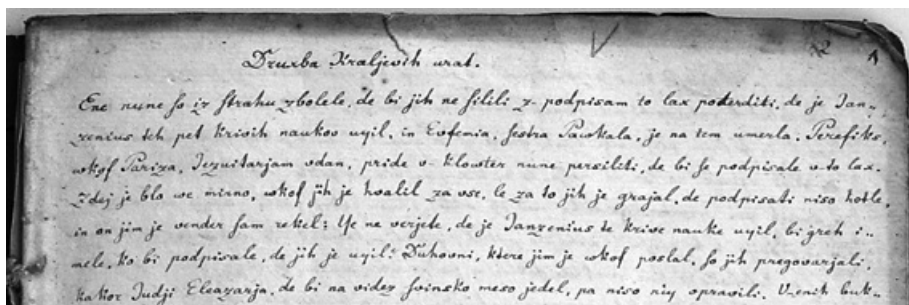 12 1
Druxba Kraljevih vrat.
Ene nune so iz strahu zbolele, de bi jih ne silili z- podpisam to lax poterditi, de je Jan-
zenius teh pet krivih naukov uyil, in Evfemia, sestra Paskala, je na tem umerla. Perefiks,
wkof Pariza, Jezuitarjam vdan, pride v- klowter nune persiliti, de bi se podpisale v-to lax.
Zdej je blo we mirno, wkof jih je hvalil za vse, le za to jih je grajal, de podpisati niso hotle,
in on jim je vender sam rekel: Ye ne verjete, de je Janzenius te krive nauke uyil, bi greh i-
mele, ko bi podpisale, de jih je uyil. Duhovni, ktere jim je wkof poslal, so jih pregovarjali,
kakor Judji Eleazarja, de bi na videz svinsko meso jedel, pa niso niy opravili. V-enih buk-